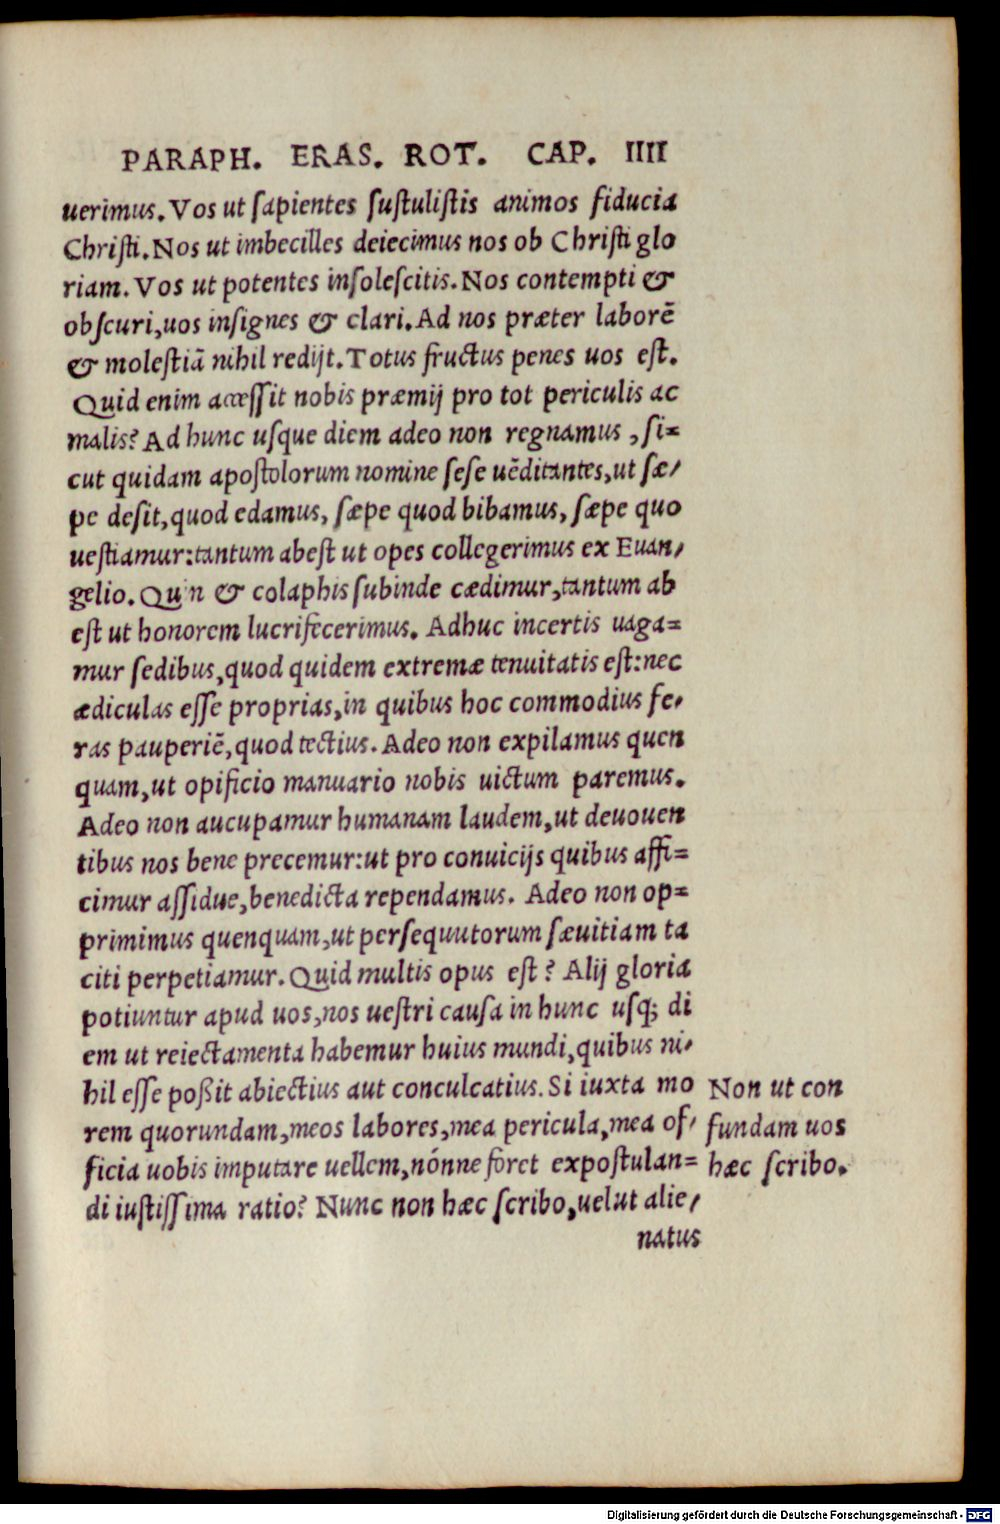 PARAPH. ERAS. ROT. CAP. IIII
uerimus. Vos ut ſapientes ſuſtuliſtis animos fiducia
Chriſti. Nos ut imbecilles deiecimus nos ob Chriſti glo
riam. Vos ut potentes inſoleſcitis. Nos contempti &
obſcuri, uos inſignes & clari. Ad nos præter laborē
& moleſtiā nihil redijt. Totus fructus penes uos eſt.
Quid enim acceſſit nobis præmij pro tot periculis ac
malis? Ad hunc uſque diem adeo non regnamus, ſi=
cut quidam apoſtolorum nomine ſeſe uēditantes, ut ſæ/
pe deſit, quod edamus, ſæpe quod bibamus, ſæpe quo
ueſtiamur: tantum abeſt ut opes collegerimus ex Euan/
gelio. Quin & colaphis ſubinde cædimur, tantum ab
eſt ut honorem lucrifecerimus. Adhuc incertis uaga=
mur ſedibus, quod quidem extremæ tenuitatis eſt: nec
ædiculas eſſe proprias, in quibus hoc commodius fe/
ras pauperiē, quod tectius. Adeo non expilamus quen
quam, ut opificio manuario nobis uictum paremus.
Adeo non aucupamur humanam laudem, ut deuouen
tibus nos bene precemur: ut pro conuicijs quibus affi=
cimur aſſidue, benedicta rependamus. Adeo non op=
primimus quenquam, ut perſequutorum ſæuitiam ta
citi perpetiamur. Quid multis opus eſt? Alij gloria
potiuntur apud uos, nos ueſtri cauſa in hunc uſq; di
em ut reiectamenta habemur huius mundi, quibus ni/
hil eſſe poßit abiectius aut conculcatius. Si iuxta mo
rem quorundam, meos labores, mea pericula, mea of/
ficia uobis imputare uellem, nónne foret expoſtulan=
di iuſtiſſima ratio? Nunc non hæc ſcribo, uelut alie/
natus
Non ut con
fundam uos
hæc ſcribo.
Digitalisierung gefördert durch die Deutsche Forschungsgemeinschaft - DFG